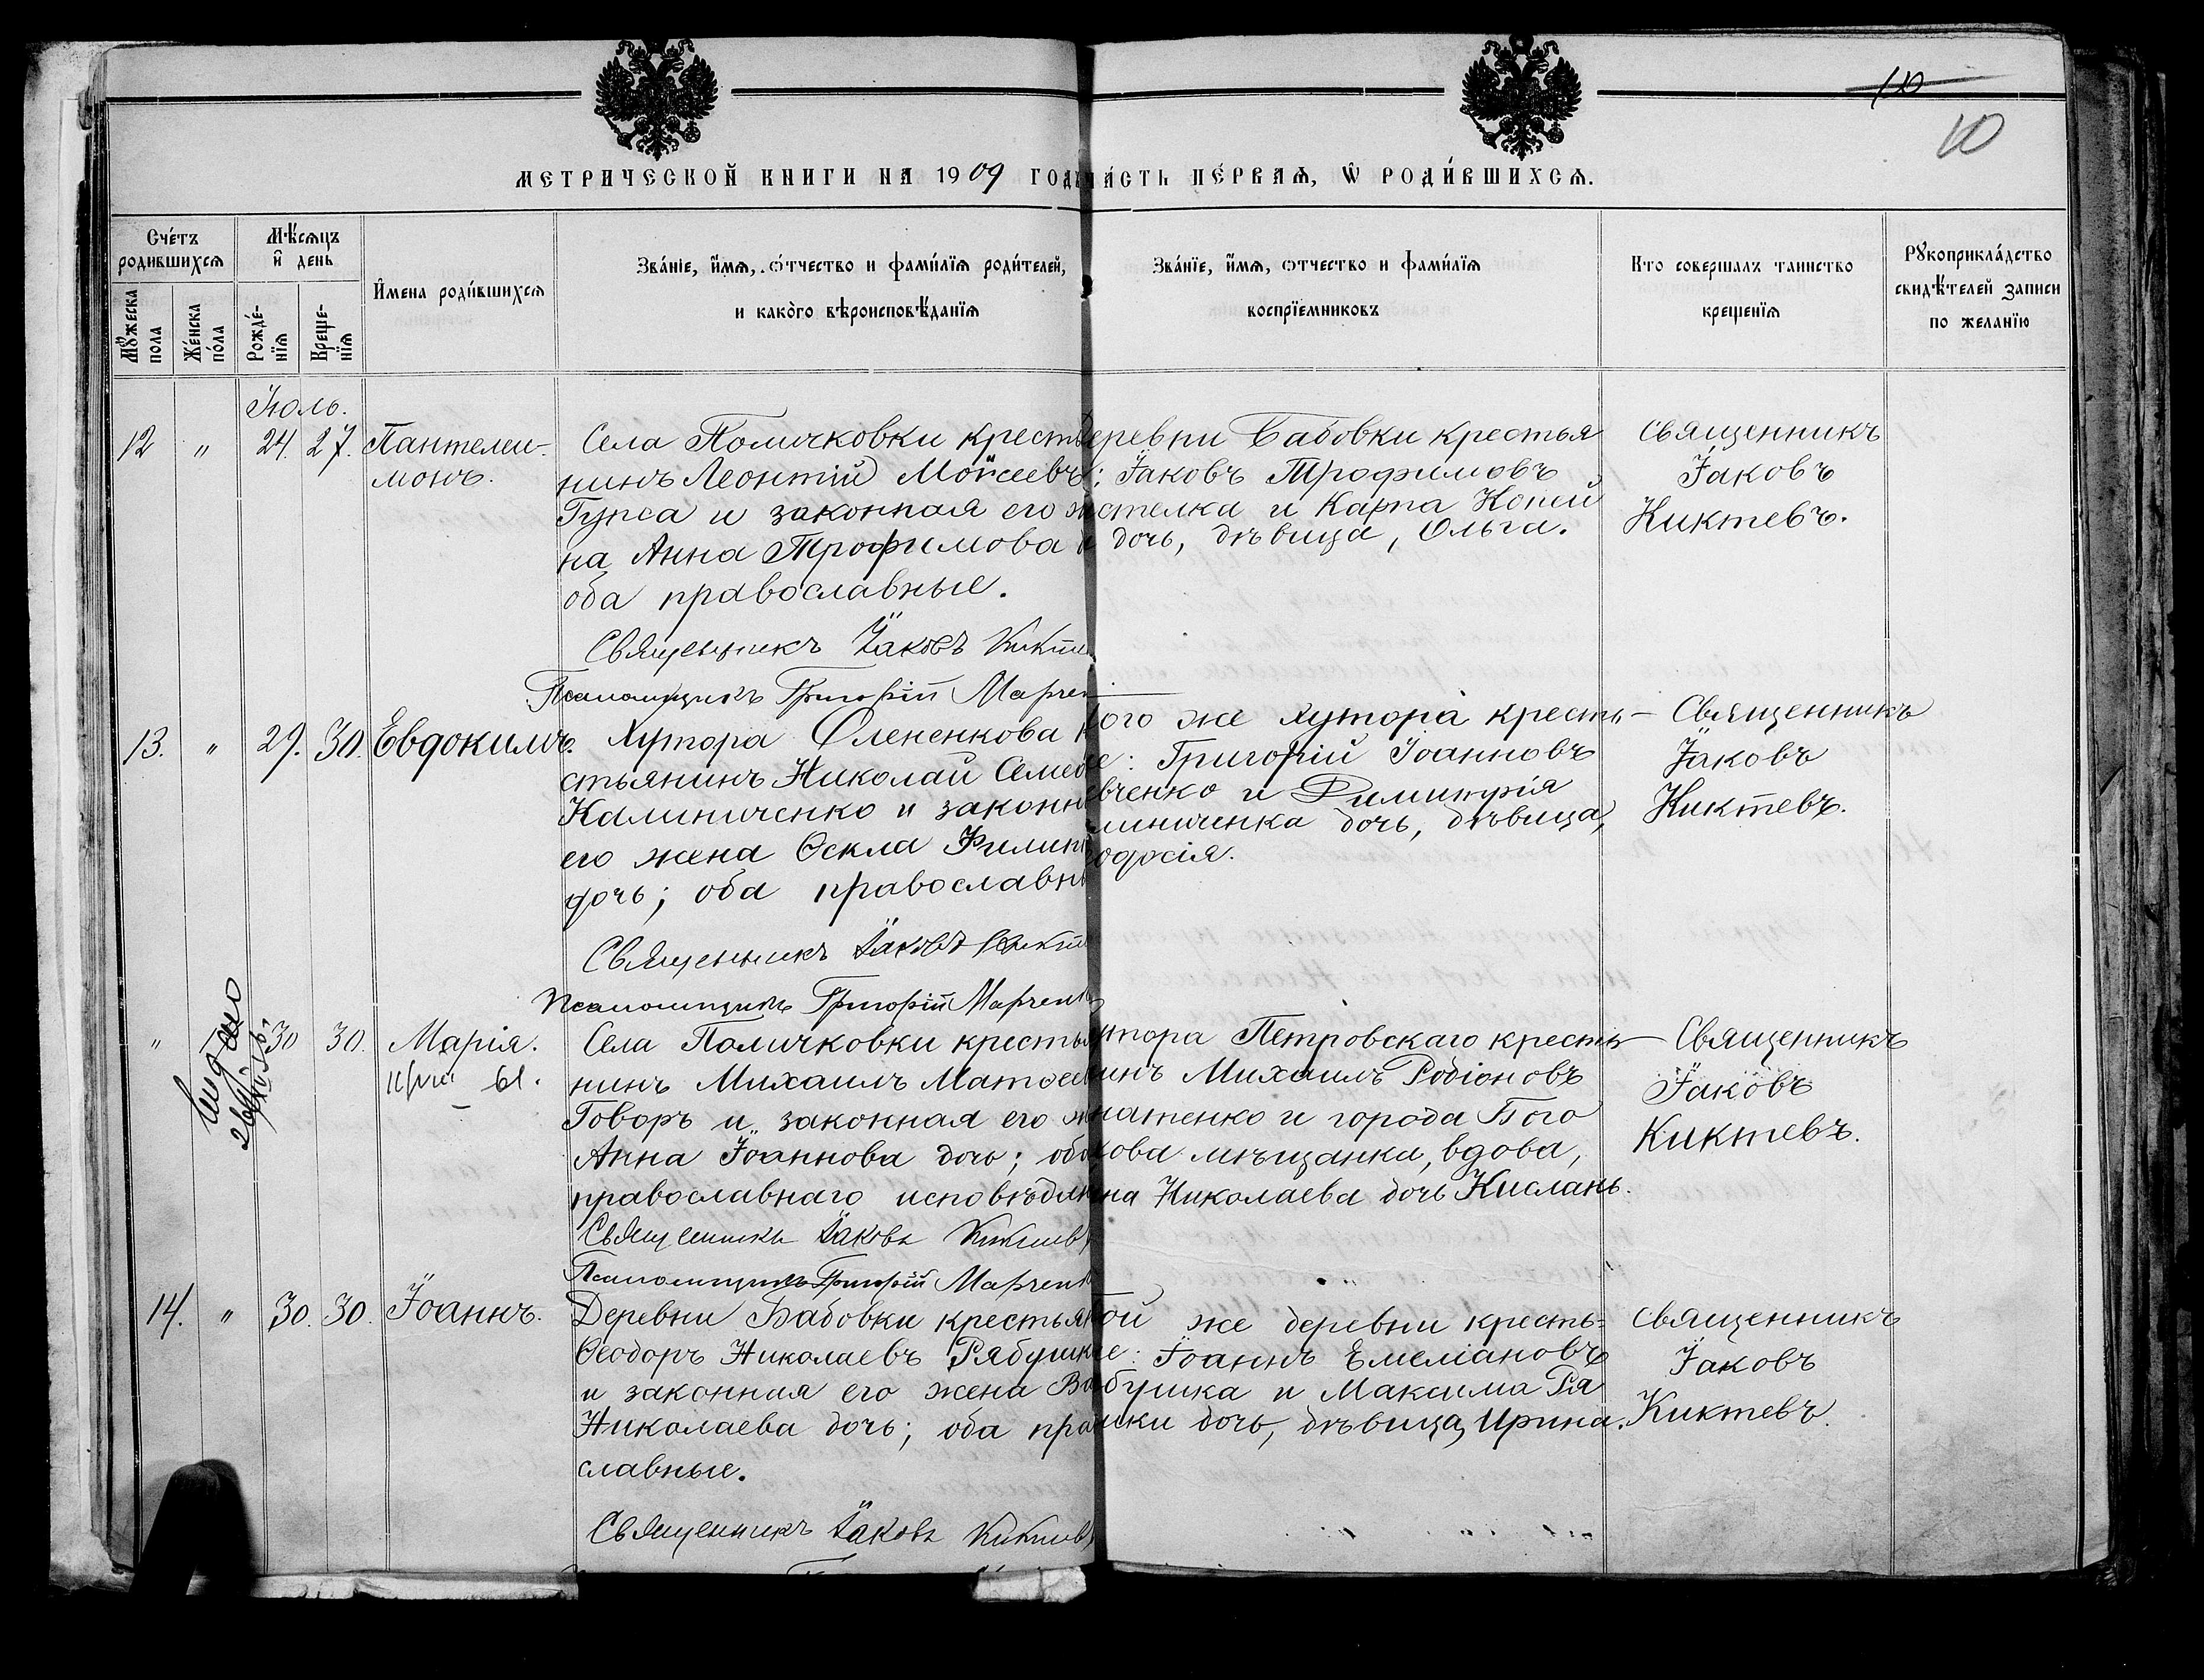 10
10
МЕТРИЧЕСКОЙ КНИГИ НА 1909 ГОДЪ ЧА́СТЬ ПЕ́РВАѦ, Ѡ РОДИ́ВШИХСѦ.
Сче́тъ родившихсѧ
Мꙋ́жеска пола
Же́нска по́ла
Мѣ́сѧцъ и день
Рожде́-нїѧ
Креще-нїѧ
Имена роди́вшихсѧ
Зва́нїе, и́мѧ, о́тчество и фами́лїѧ роди́телей,
и како̀го вѣроисповѣ́данїѧ
Зва́нїе, и́мѧ, отчество и фами́лїѧ
воспрїемниковъ
Кто совершалъ таинство
крещенїѧ
Рꙋкоприкла́дство
свидѣ́телей записи
по желанїю
Іюль.
12 " 24. 27. Пантелеи-
монъ.
Села Поличковки крестья
нинъ Леонтій Моѵсеевъ
Гупса и законная его ж
на Анна Трофимова
оба православные.
Священникъ Іаковъ
Псаломщикъ Григорій Марчен
Деревни Бабовки крестья
: Іаковъ Трофимовъ
стелка и Карпа
дочь, дѣвица, Ольга.
Священникъ
Іаковъ
Киктевъ.
13. " 29. 30. Евдокимъ.
Хутора Олененкова
стьянинъ Николай Семео
Калиниченко и законн
его жена Ѳекла Филип
дочь; оба православн
Священникъ Іаковъ
Псаломщикъ Григорій Марченк
того же хутора кресть-
е: Григорій Іоанновъ
вченко и Димитрія
линиченка дочь, дѣвица,
одосія.
Священникъ
Іаковъ
Киктевъ.
" 30 30. Марія.
61.
Выдано
26
Села Поличковки крестья
нинъ Михаилъ Матѳеев
Говоръ и законная его ж
Анна Іоаннова дочь; оба
православнаго исповѣдан
Священникъ Іаковъ Киктевъ
Псаломщикъ Григорій Марченк
утора Петровскаго кресть-
инъ Михаилъ Родіоновъ
натенко и города Бого
хова мѣщанка, вдова,
на Николаева дочь Кислань.
Священникъ
Іаковъ
Киктевъ.
14. " 30. 30. Іоаннъ.
Деревни Бабовки крестья
Ѳеодоръ Николаевъ Рябушк
и законная его жена Ва
Николаева дочь; оба пра
славные.
Священникъ Іаковъ Киктевъ
той же деревни кресть=
е: Іоаннъ Емеліановъ
бушка и Максима Ря
шки дочь, дѣвица, Ирина.
Священникъ
Іаковъ
Киктевъ.